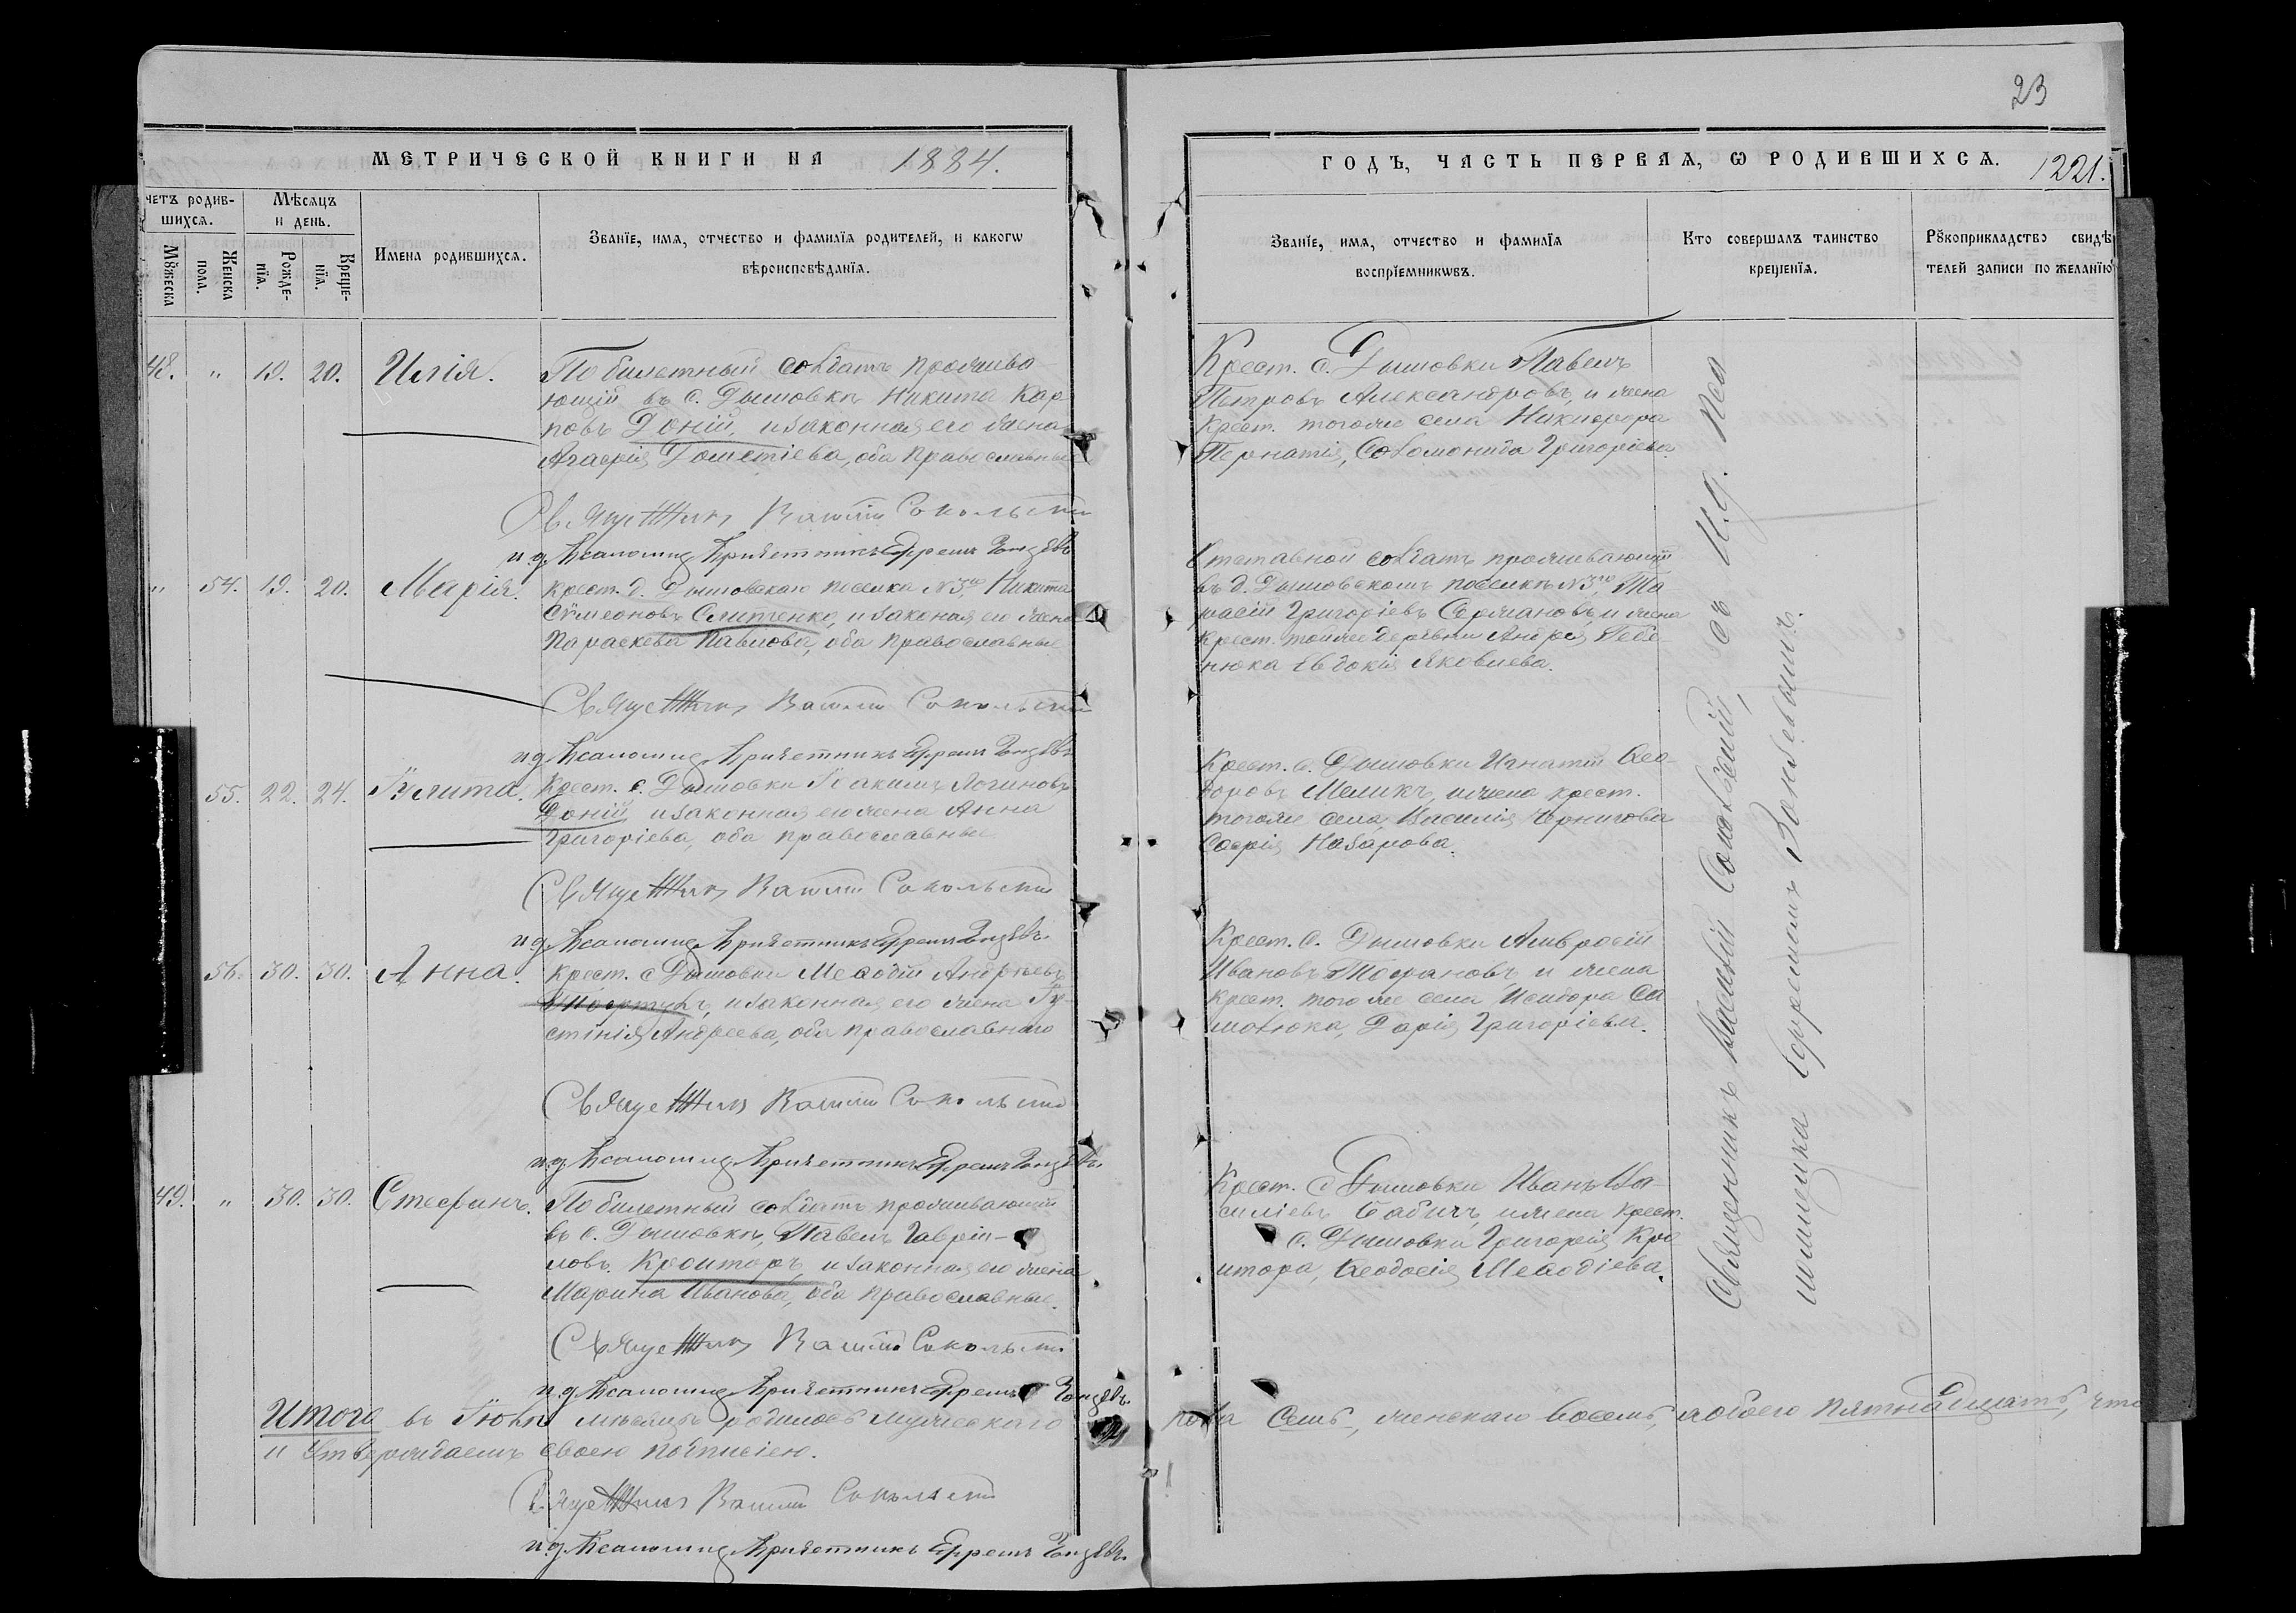 23
МЕТРИЧЕСКОЙ КНИГИ НА 1884.
ГОДЪ, ЧАСТЬ ПЕРВАЯ, Ѡ РОДИВШИХСЯ. 1221.
четъ родив-
шихся.
Мѣсяцъ
и день.
Мꙋжеска
Женска
пола.
Рожде-
нїя.
Креще-
нїя.
Имена родившихся.
Званїе, имя, отчество и фамилїя родителей, и какогѡ
вѣроисповѣданїя.
Званїе, имя, отчество и фамилїя
воспрїемникѡвъ.
Кто совершалъ таинство
крещенїя.
Рꙋкоприкладство свидѣ
телей записи по желанїю
48. " 19. 20. Илія.
По билетный солдатъ прожива-
ющій въ с. Дышовкѣ Никита Кар-
повъ Доній, и законная его жена
Агафія Дометіева, оба православные
Священникъ Василій Сокольскій
и. д. Псаломщ. Причетникъ Ефремъ
Крест. с. Дышовки Павелъ
Петровъ Александровъ, и жена
крест. тогоже села Никифора
Пернатія, Соломонида Григоріева.
" 54. 19. 20. Марія.
крест. д. Дышовскаго поселка №3го, Никита
Симеоновъ Слитенко, и законая его жена
Параскева Павлова, оба православные
Священникъ Василій Сокольскій
и д. Псаломщ. Причетникъ Ефремъ
Отставной солдатъ проживающій
въ д. Дышовскомъ поселкѣ №3го, Та
расій Григоріевъ Сержановъ, и жена
крест. тойже деревни Андрея
нюка Евдокія Яковлева.
55. 22. 24. Іулита.
Крест. с. Дышовки Іоакимъ Логиновъ
Доній, и законная его жена Анна
Григоріева, оба православные
Священникъ Василій Сокольскій
и д. Псаломщ. Причетникъ Ефремъ
Крест. с. Дышовки Игнатій Ѳео-
доровъ Меликъ, и жена крест.
тогоже села, Василія Чернигова
Софія Назарова.
56. 30. 30. Анна.
крест. с Дышовки Меѳодій Андреевъ
и законная его жена Іу-
стинія Андреева, оба православнаго
Священникъ Василій Сокольскій
и.д. Псаломщ. Причетникъ Ефремъ
Крест. с. Дышовки Амвросій
Ивановъ Тофановъ, и жена
крест. того же села Исидора Са
молюка, Дарія Григоріева.
49. " 30. 30. Стефанъ.
По билетный солдатъ, проживающій
въ с. Дышовкѣ, Павелъ Гаврїи-
ловъ Кроиторъ, и законная его жена
Марина Иванова, оба православные.
Священникъ Василій Сокольскій
и.д. Псаломщ. Причетникъ Ефремъ
Крест. с Дышовки Иванъ Ва-
силіевъ Бабичъ, и жена крест.
с. Дышовки Григорія Кро
итора, Ѳеодосія Меѳодіева.
Священникъ Василій Сокольскій, съ И.д. Пса
ломщика Ефремомъ
Итого въ Іюнѣ мѣсяцѣ родилось мужескаго пола семь, женскаго восемь, а обоего пятнадцать, что
и утверждаемъ своею подписїею.
Священникъ Василій Сокольскій
и.д. Псаломщ. Причетникъ Ефремъ